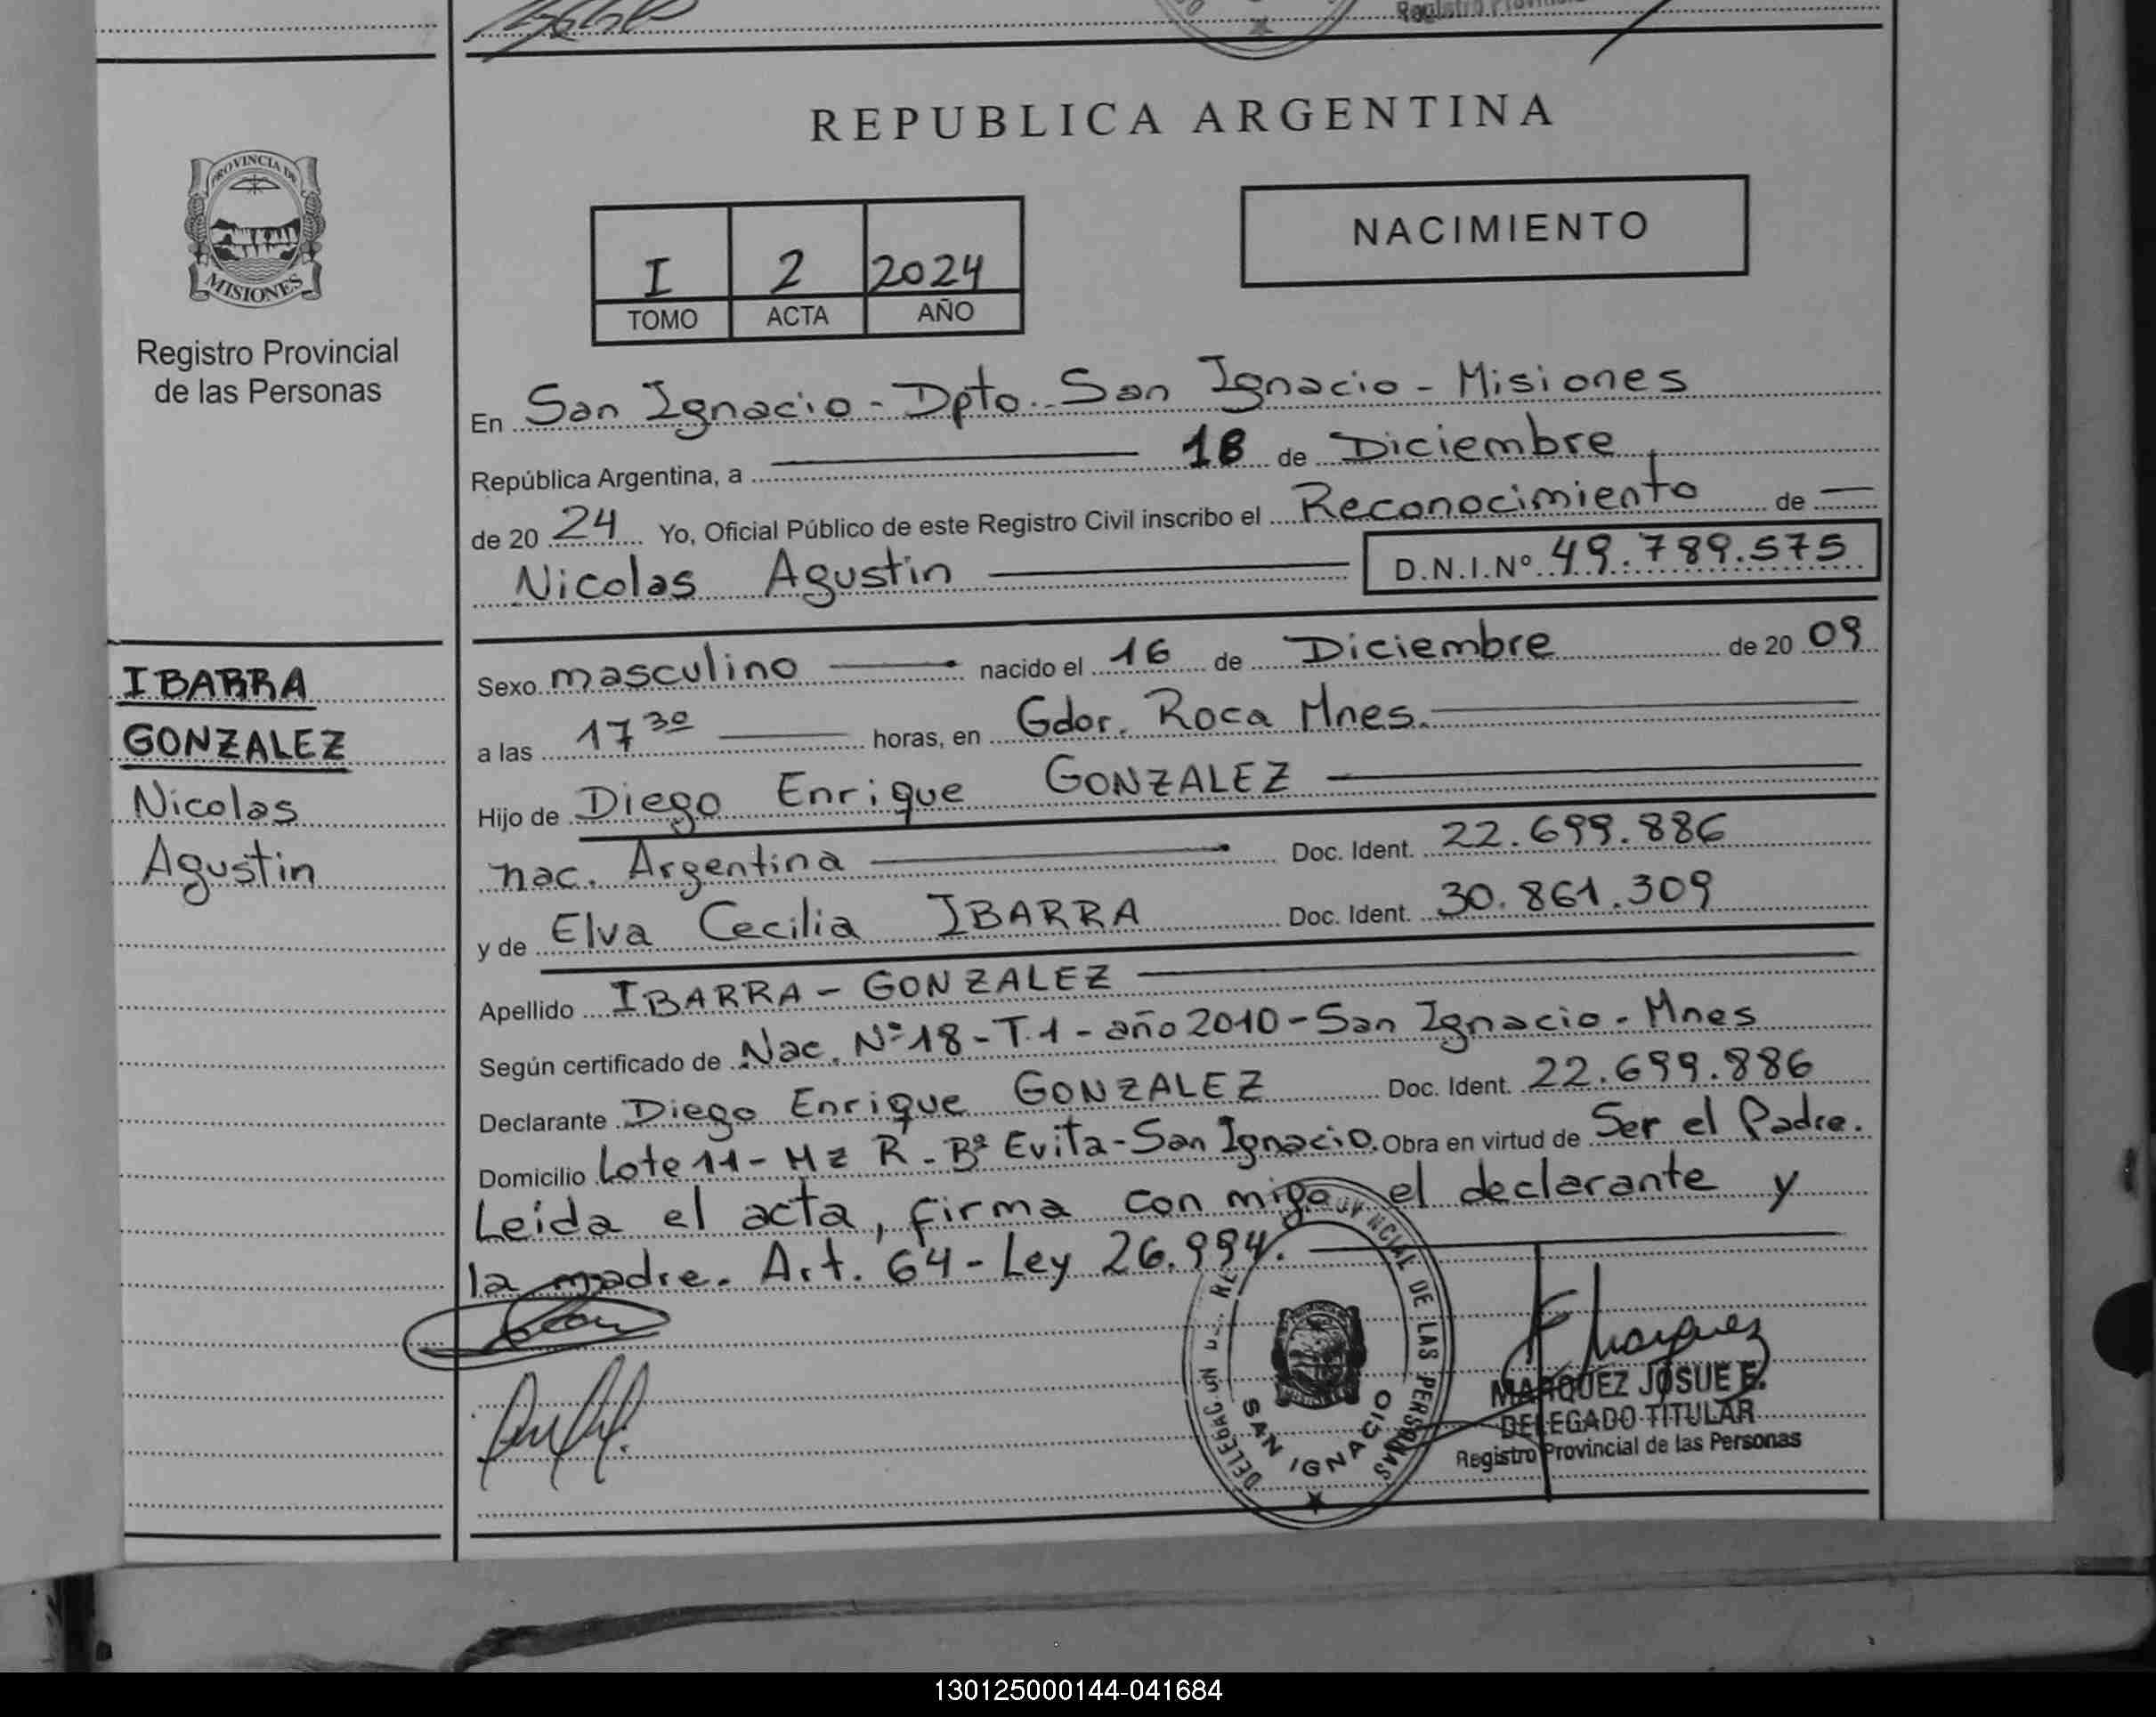 Registro Provin
REPUBLICA ARGENTINA
PROVINCIA DE
MISIONES
Registro Provincial
de las Personas
I 2 2024
TOMO ACTA AÑO
NACIMIENTO
En San Ignacio - Dpto. San Ignacio - Misiones
República Argentina, a 18 de Diciembre
de 20 24 Yo, Oficial Público de este Registro Civil inscribo el Reconocimiento de —
Nicolas Agustin D.N.I.Nº 49.789.575
IBARRA
GONZALEZ
Nicolas
Agustin
Sexo masculino nacido el 16 de Diciembre de 20 09
a las 17 30 horas, en Gdor. Roca Mnes.
Hijo de Diego Enrique GONZALEZ
nac. Argentina Doc. Ident. 22.699.886
y de Elva Cecilia IBARRA Doc. Ident. 30.861.309
Apellido IBARRA - GONZALEZ
Según certificado de Nac. Nº 18 - T.1 - año 2010 - San Ignacio - Mnes
Declarante Diego Enrique GONZALEZ Doc. Ident. 22.699.886
Domicilio Lote 11 - Mz R - Bº Evita - San Ignacio. Obra en virtud de Ser el Padre.
Leida el acta, firma con migo el declarante y
la madre. Art. 64 - Ley 26.994.
DE LAS PERSONAS
SAN IGNACIO
MARQUEZ JOSUE E.
DELEGADO TITULAR
Registro Provincial de las Personas
130125000144-041684